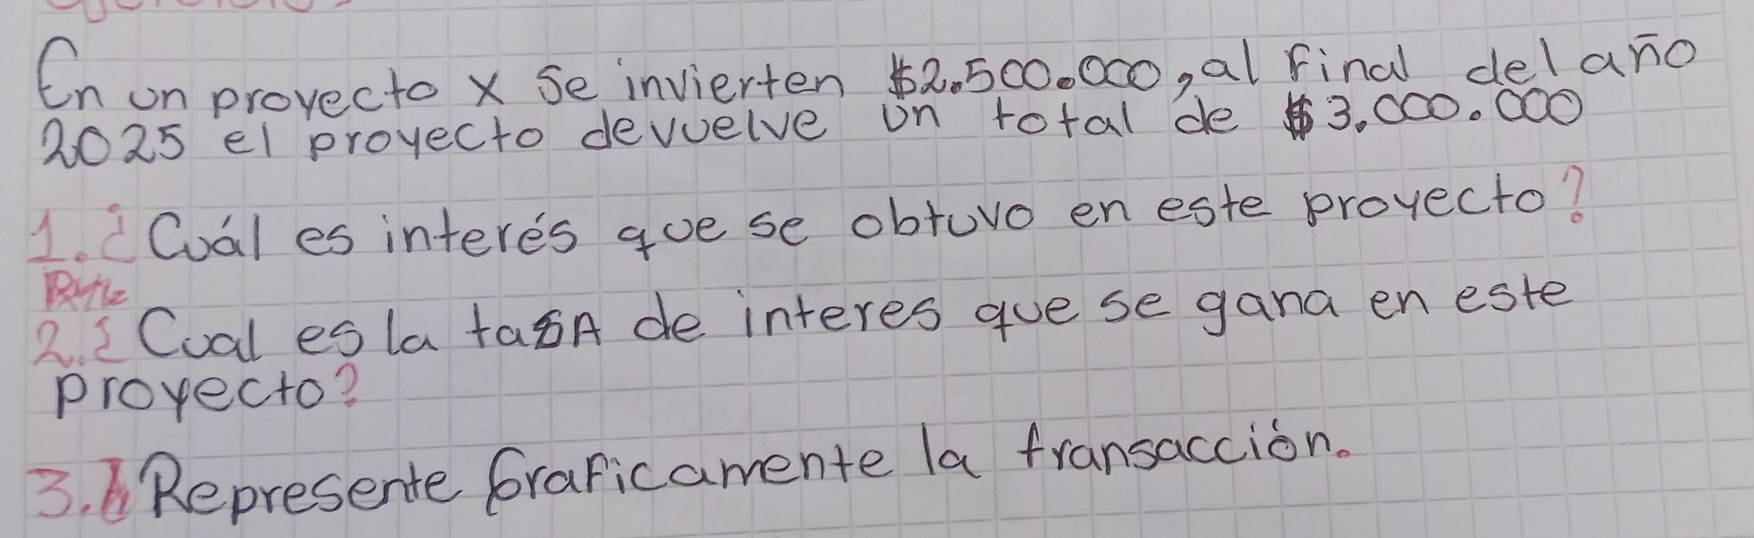 En un proyecto x se invierten $2.500.000, al final del año
2025 el proyecto devuelve un total de $3.000.000
1. ¿Cuál es interés que se obtuvo en este proyecto?
2. ¿Cual es la tasA de interes que se gana en este
proyecto?
3. Represente Graficamente la transacción.